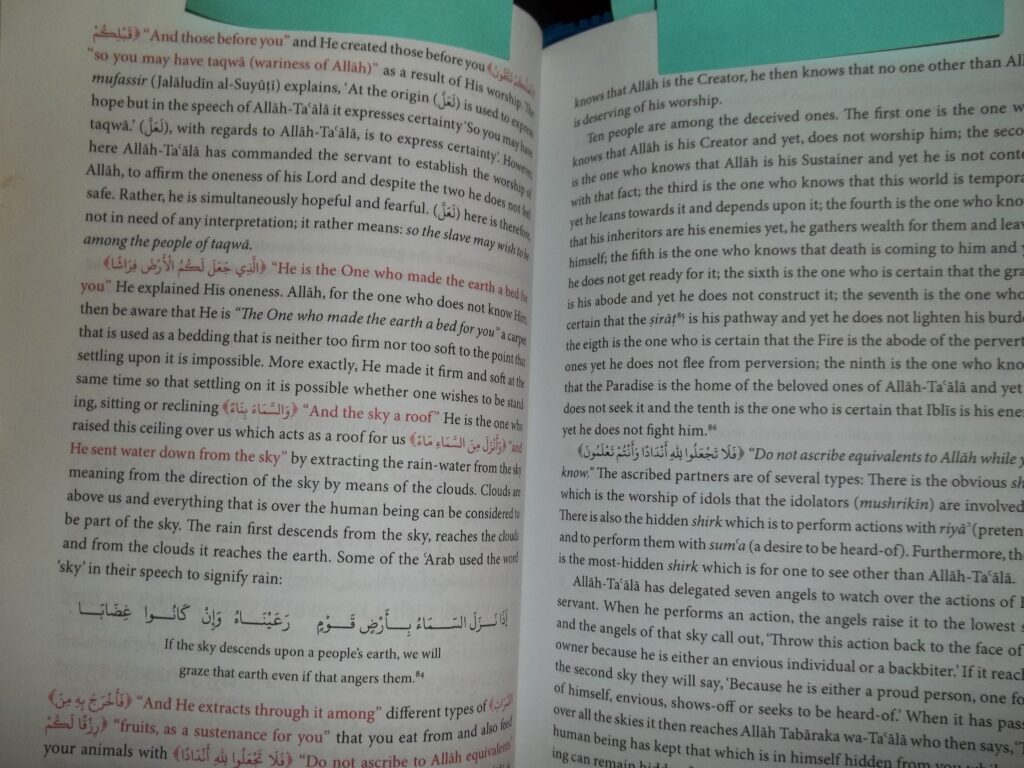 ﴿قَبْلِكُمْ “And those before you” and He created those before you ﴿لَعَلَّكُمْ تَتَّقُونَ﴾
“so you may have taqwā (wariness of Allāh)” as a result of His worship. The
mufassir (Jalāludīn al-Suyūṭī) explains, ‘At the origin (لَعَلَّ) is used to express
hope but in the speech of Allāh-Taʿālā it expresses certainty ‘So you may have
taqwā.’ (لَعَلَّ), with regards to Allāh-Taʿālā, is to express certainty’. However,
here Allāh-Taʿālā has commanded the servant to establish the worship of
Allāh, to affirm the oneness of his Lord and despite the two he does not feel
safe. Rather, he is simultaneously hopeful and fearful. (لَعَلَّ) here is therefore,
not in need of any interpretation; it rather means: so the slave may wish to be
among the people of taqwā.
﴿الَّذِي جَعَلَ لَكُمُ الْأَرْضَ فِرَاشًا﴾ “He is the One who made the earth a bed for
you” He explained His oneness. Allāh, for the one who does not know Him,
then be aware that He is “The One who made the earth a bed for you” a carpet
that is used as a bedding that is neither too firm nor too soft to the point that
settling upon it is impossible. More exactly, He made it firm and soft at the
same time so that settling on it is possible whether one wishes to be stand-
ing, sitting or reclining ﴿وَالسَّمَاءَ بِنَاءً﴾ “And the sky a roof” He is the one who
raised this ceiling over us which acts as a roof for us ﴿وَأَنْزَلَ مِنَ السَّمَاءِ مَاءً﴾ “and
He sent water down from the sky” by extracting the rain-water from the sky
meaning from the direction of the sky by means of the clouds. Clouds are
above us and everything that is over the human being can be considered to
be part of the sky. The rain first descends from the sky, reaches the clouds
and from the clouds it reaches the earth. Some of the ‘Arab used the word
‘sky’ in their speech to signify rain:
إِذَا نَزَلَ السَّمَاءُ بِأَرْضِ قَوْمٍ رَعَيْنَاهُ وَإِنْ كَانُوا غِضَابَا
If the sky descends upon a people’s earth, we will
graze that earth even if that angers them.⁸⁴
﴿فَأَخْرَجَ بِهِ مِنَ “And He extracts through it among” different types of الثَّمَرَاتِ﴾
﴿رِزْقًا لَكُمْ “fruits, as a sustenance for you” that you eat from and also feed
your animals with ﴿فَلَا تَجْعَلُوا لِلهِ أَنْدَادًا﴾ “Do not ascribe to Allāh equivalents”
knows that Allāh is the Creator, he then knows that no one other than
is deserving of his worship.
Ten people are among the deceived ones. The first one is the one
knows that Allāh is his Creator and yet, does not worship him; the
is the one who knows that Allāh is his Sustainer and yet he is not
with that fact; the third is the one who knows that this world is
yet he leans towards it and depends upon it; the fourth is the one who
that his inheritors are his enemies yet, he gathers wealth for them and
himself; the fifth is the one who knows that death is coming to him and
he does not get ready for it; the sixth is the one who is certain that the
is his abode and yet he does not construct it; the seventh is the one who
certain that the ṣirāṭ⁸⁵ is his pathway and yet he does not lighten his
the eigth is the one who is certain that the Fire is the abode of the
ones yet he does not flee from perversion; the ninth is the one who
that the Paradise is the home of the beloved ones of Allāh-Taʿālā and yet
does not seek it and the tenth is the one who is certain that Iblīs is his
yet he does not fight him.⁸⁶
﴿فَلَا تَجْعَلُوا لِلهِ أَنْدَادًا وَأَنْتُمْ تَعْلَمُونَ﴾ “Do not ascribe equivalents to Allāh while
know.” The ascribed partners are of several types: There is the obvious
which is the worship of idols that the idolators (mushrikīn) are involved
There is also the hidden shirk which is to perform actions with riyāʾ
and to perform them with sumʿa (a desire to be heard-of). Furthermore,
is the most-hidden shirk which is for one to see other than Allāh-Taʿālā.
Allāh-Taʿālā has delegated seven angels to watch over the actions of
servant. When he performs an action, the angels raise it to the lowest
and the angels of that sky call out, ‘Throw this action back to the face of
owner because he is either an envious individual or a backbiter.’ If it
the second sky they will say, ‘Because he is either a proud person, one
of himself, envious, shows-off or seeks to be heard-of.’ When it has
over all the skies it then reaches Allāh Tabāraka wa-Taʿālā who then says,
human being has kept that which is in himself hidden from you
ing can remain